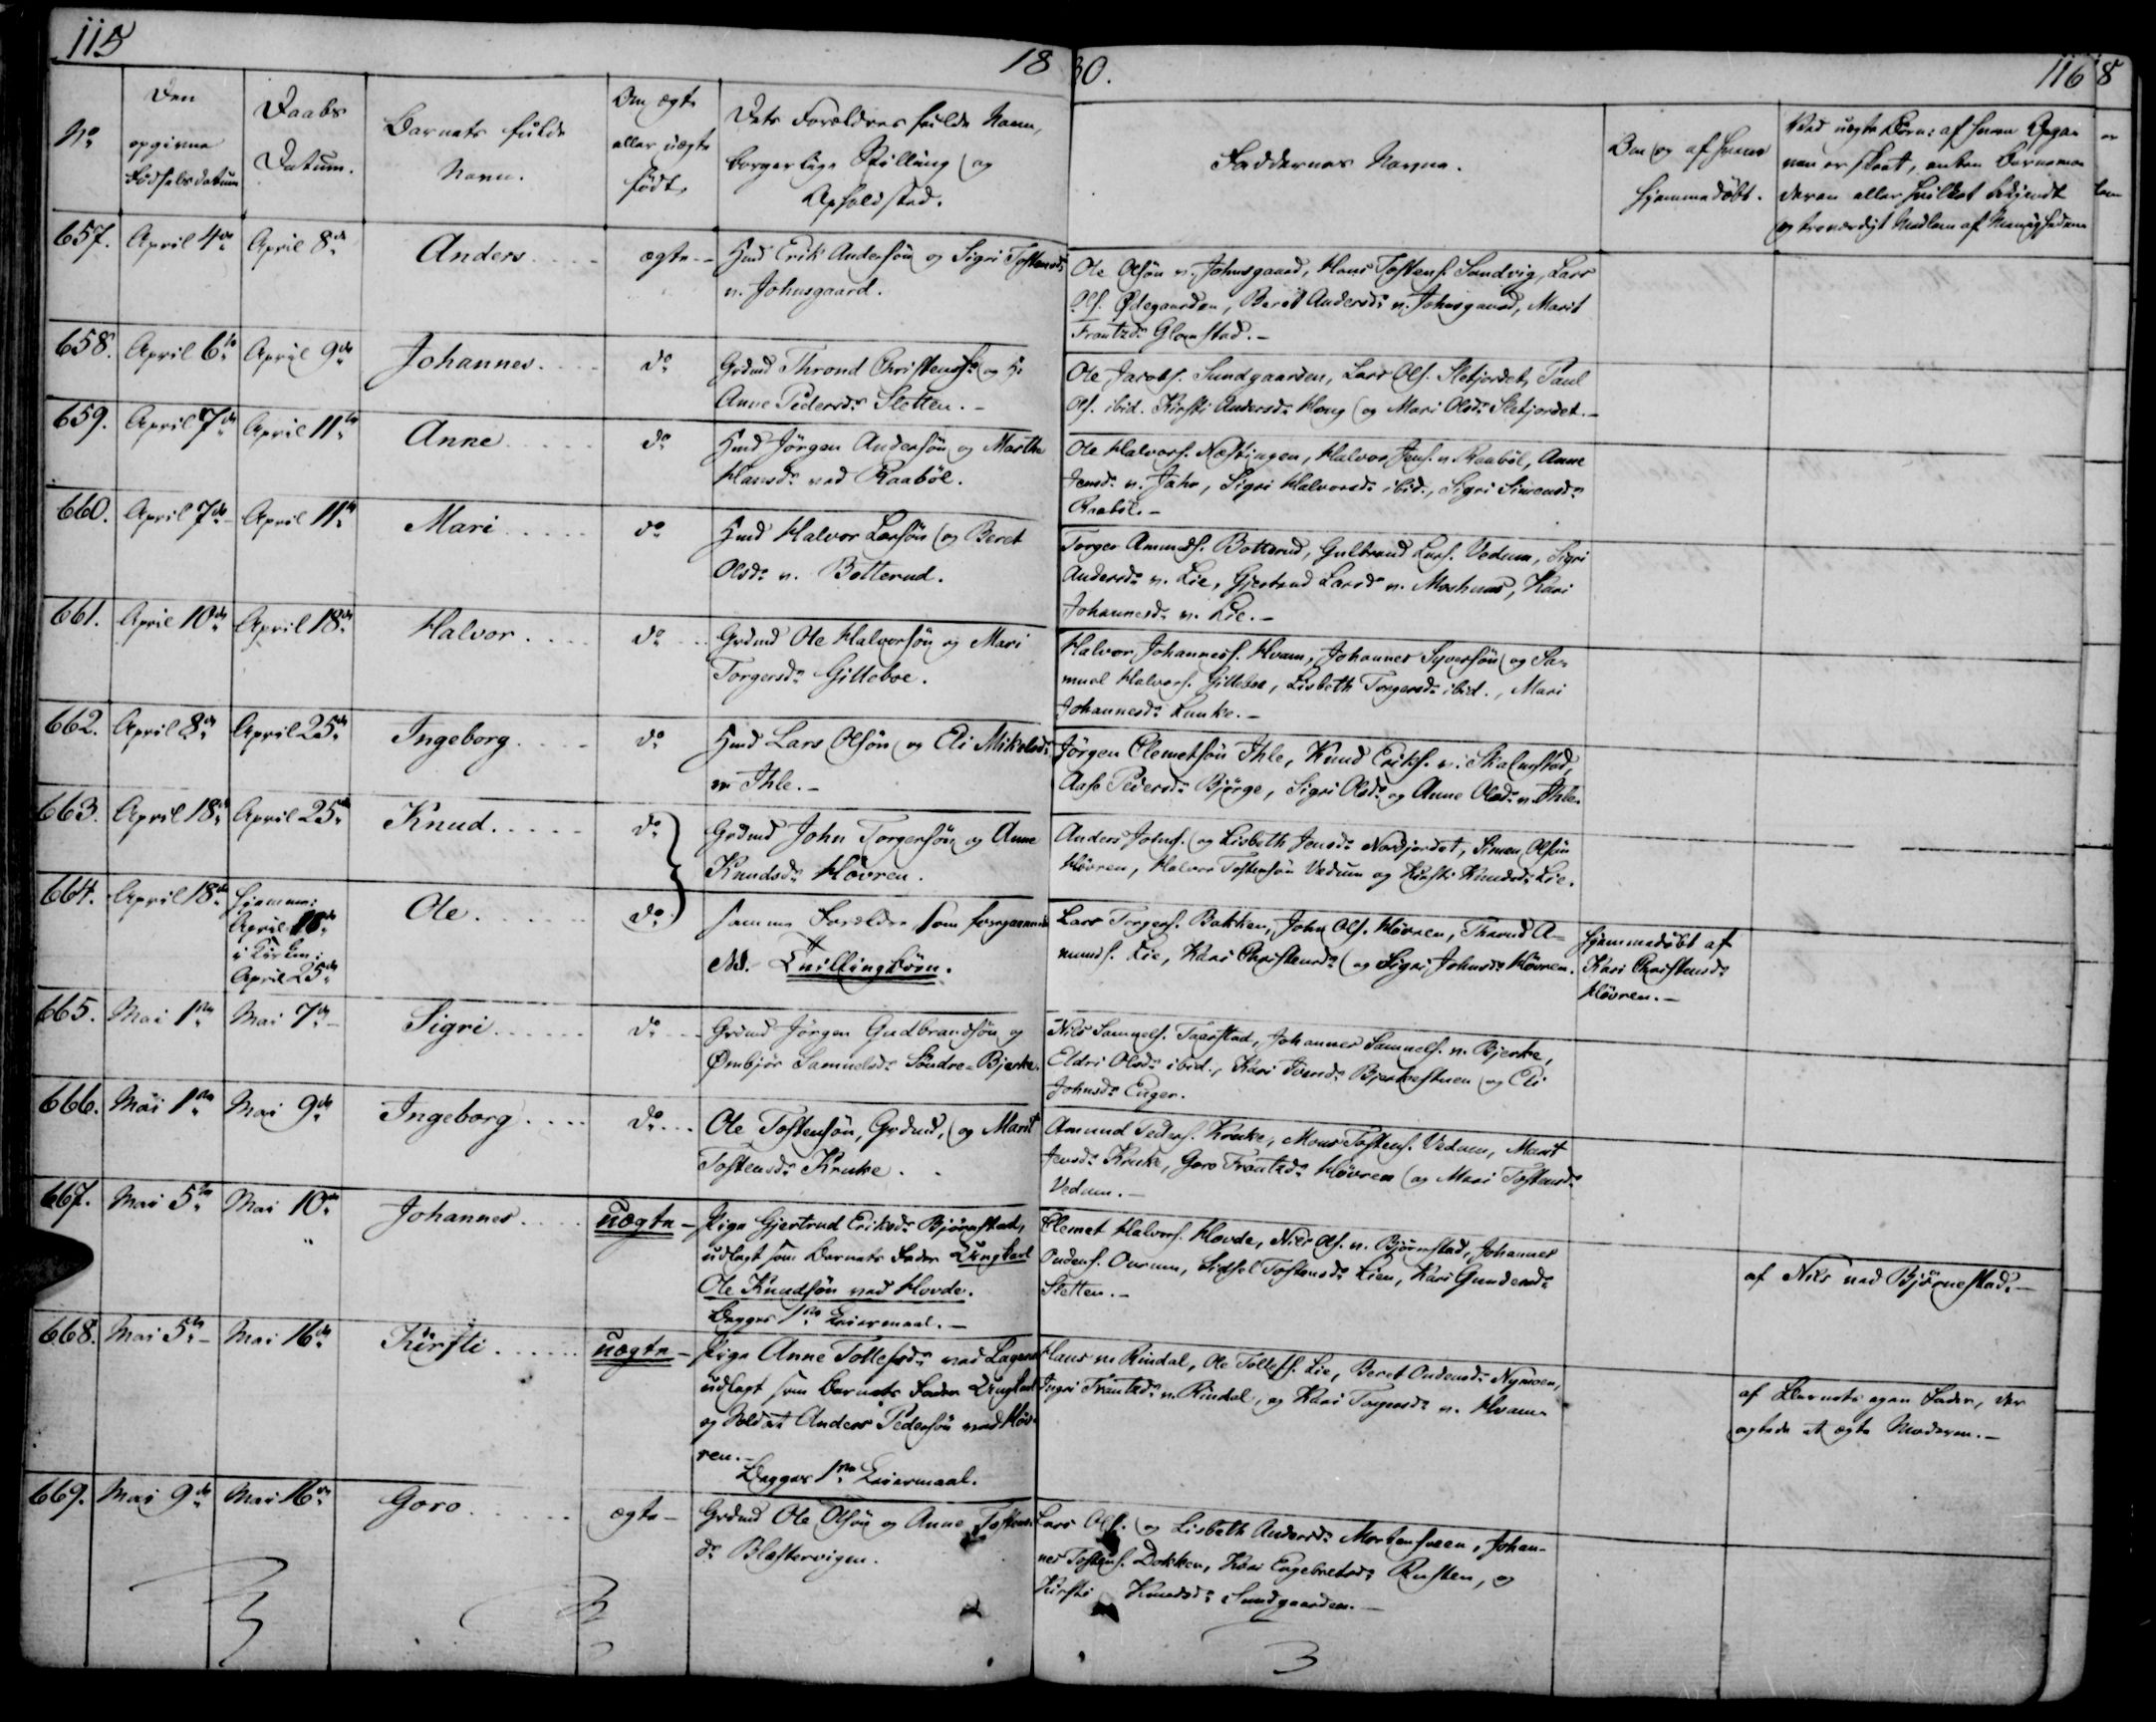 115
18
30.
116
8
No
Den
opgivne
Fødselsdatum
Daabs
Datum.
Barnets fulde
Navn.
Om ægte
eller uægte
født,
Dets Forældres fulde Navn,
borgerlige Stilling og
Opholdsted.
Faddernes Navne.
Om og af hvem
hjemmedøbt.
Ved uægte Børn: af hvem
er skeet, enten Barnemo
deren eller hvilket bekjendt
og troværdigt Medlem af Menigheden
657. April 4de April 8de Anders ægte Gmd Erik Andersön og Sigri Tostensdr
n. Johnsgaard.
Ole Olsön n. Johnsgaard, Hans Tostens. Sandvig, Lars
Ols. Ødegaarden, Beret Andersdr n. Johnsgaard, Marit
Frantzdr Glomstad.
658. April 6te April 9de Johannes do Grdmd Thrond Christens. og H:
Anne Pedersdr Sletten.
Ole Jacobs. Sundgaarden, Lars Ols. Sletjordet, Paul
Ols. ibid. Kirsti Andersdr Haug og Mari Olsdr Sletjordet.
659. April 7de April 11te Anne do Hmd Jörgen Andersön og Marthe
Hansdr ved Raaböl.
Ole Halvors. Næstingen, Halvor Jens. n. Raaböl, Anne
Jensdr n. Jahr, Sigri Halvorsdr ibid., Sigri Simensdr
Raaböl.
660. April 7de April 11te Mari do Hmd Halvor Larsön og Beret
Olsdr n. Botterud.
Torger Amunds. Botterud, Gulbrand Lars. Vedum, Sigri
Andersdr n. Lie, Gjertrud Larsdr n. Moshuus, Kari
Johannesdr n. Lie.
661. April 10de April 18de Halvor do Grdmd Ole Halvorsön og Mari
Torgersdr Gilleboe.
Halvor Johannes. Hvam, Johannes Syversön og Sa-
muel Halvors. Gilleboe, Lisbeth Torgersdr ibid., Mari
Johannesdr Lunke.
662. April 8de April 25de Ingeborg do Hmd Lars Olsön og Eli Mikelsdr
n. Ihle.
Jörgen Clemetsön Ihle, Knud Eriks. n. Skalmstad,
Aase Pedersdr Björge, Sigri Olsdr og Anne Olsdr n. Ihle.
663. April 18de April 25de Knud do Grdmd John Torgersön og Anne
Knudsdr Hövren.
Anders Johns. og Lisbeth Jensdr Nordjordet, Simen Olsön
Hövren, Halvor Tostensön Vedum og Kirsti Knudsdr Lie.
664. April 18de Hjemme:
April 18de
i Kirken:
April 25de
Ole do samme Forældre som foregaaende
NB. Tvillingbörn.
Lars Torgers. Bakken, John Ols. Hövren, Thrond A-
munds. Lie, Kari Christensdr og Sigri Johnsdr Hövren.
Hjemmedöbt af
Kari Christensdr
Hövren.
665. Mai 1ste Mai 7de Sigri do Grdmd Jörgen Gudbrandsön og
Ømbjör Samuelsdr Söndre-Bjerke.
Nils Samuels. Taarstad, Johannes Samuels. n. Bjerke,
Eldri Olsdr ibid., Kari Iversdr Bjerkestuen og Eli
Johnsdr Enger.
666. Mai 1ste Mai 9de Ingeborg do Ole Tostensön, Grdmd, og Marit
Tostensdr Kruke.
Amund Peders. Kruke, Mons Tostens. Vedum, Marit
Jensdr Kruke, Goro Frantzdr Hövren og Mari Tostensdr
Vedum.
667. Mai 5te Mai 10de Johannes uægte Pige Gjertrud Eriksdr Björnstad,
udlagt som Barnets Fader Ungkarl
Ole Knudsön ved Hovde.
Begges 1ste Leiermaal.
Clemet Halvors. Hovde, Nils Ols. n. Björnstad, Johannes
Oudens. Onrum, Sidsel Tostensdr Lien, Kari Gundersdr
Sletten.
af Nils ved Björnestad.
668. Mai 5te Mai 16de Kirsti uægte Pige Anne Tollefsdr ved
udlagt som Barnets Fader Ungkarl
og Soldat Anders Pedersön ved Höv-
ren.
Begges 1ste Leiermaal.
Hans n. Rindal, Ole Tollefs. Lie, Beret Oudensdr Nymoen,
Ingri Frantzdr n. Rindal, og Kari Torgersdr n. Hvam.
af Barnets egen Fader, der
agtede at ægte Moderen.
669. Mai 9de Mai 16de Goro ægte Grdmd Ole Olsön og Anne Tostens-
dr Blestervigen.
Lars Ols. og Lisbeth Andersdr Mortensveen, Johan-
nes Tostens. Dokken, Kari Engebretsdr Rusten, og
Kirsti Knudsdr Sundgaarden.